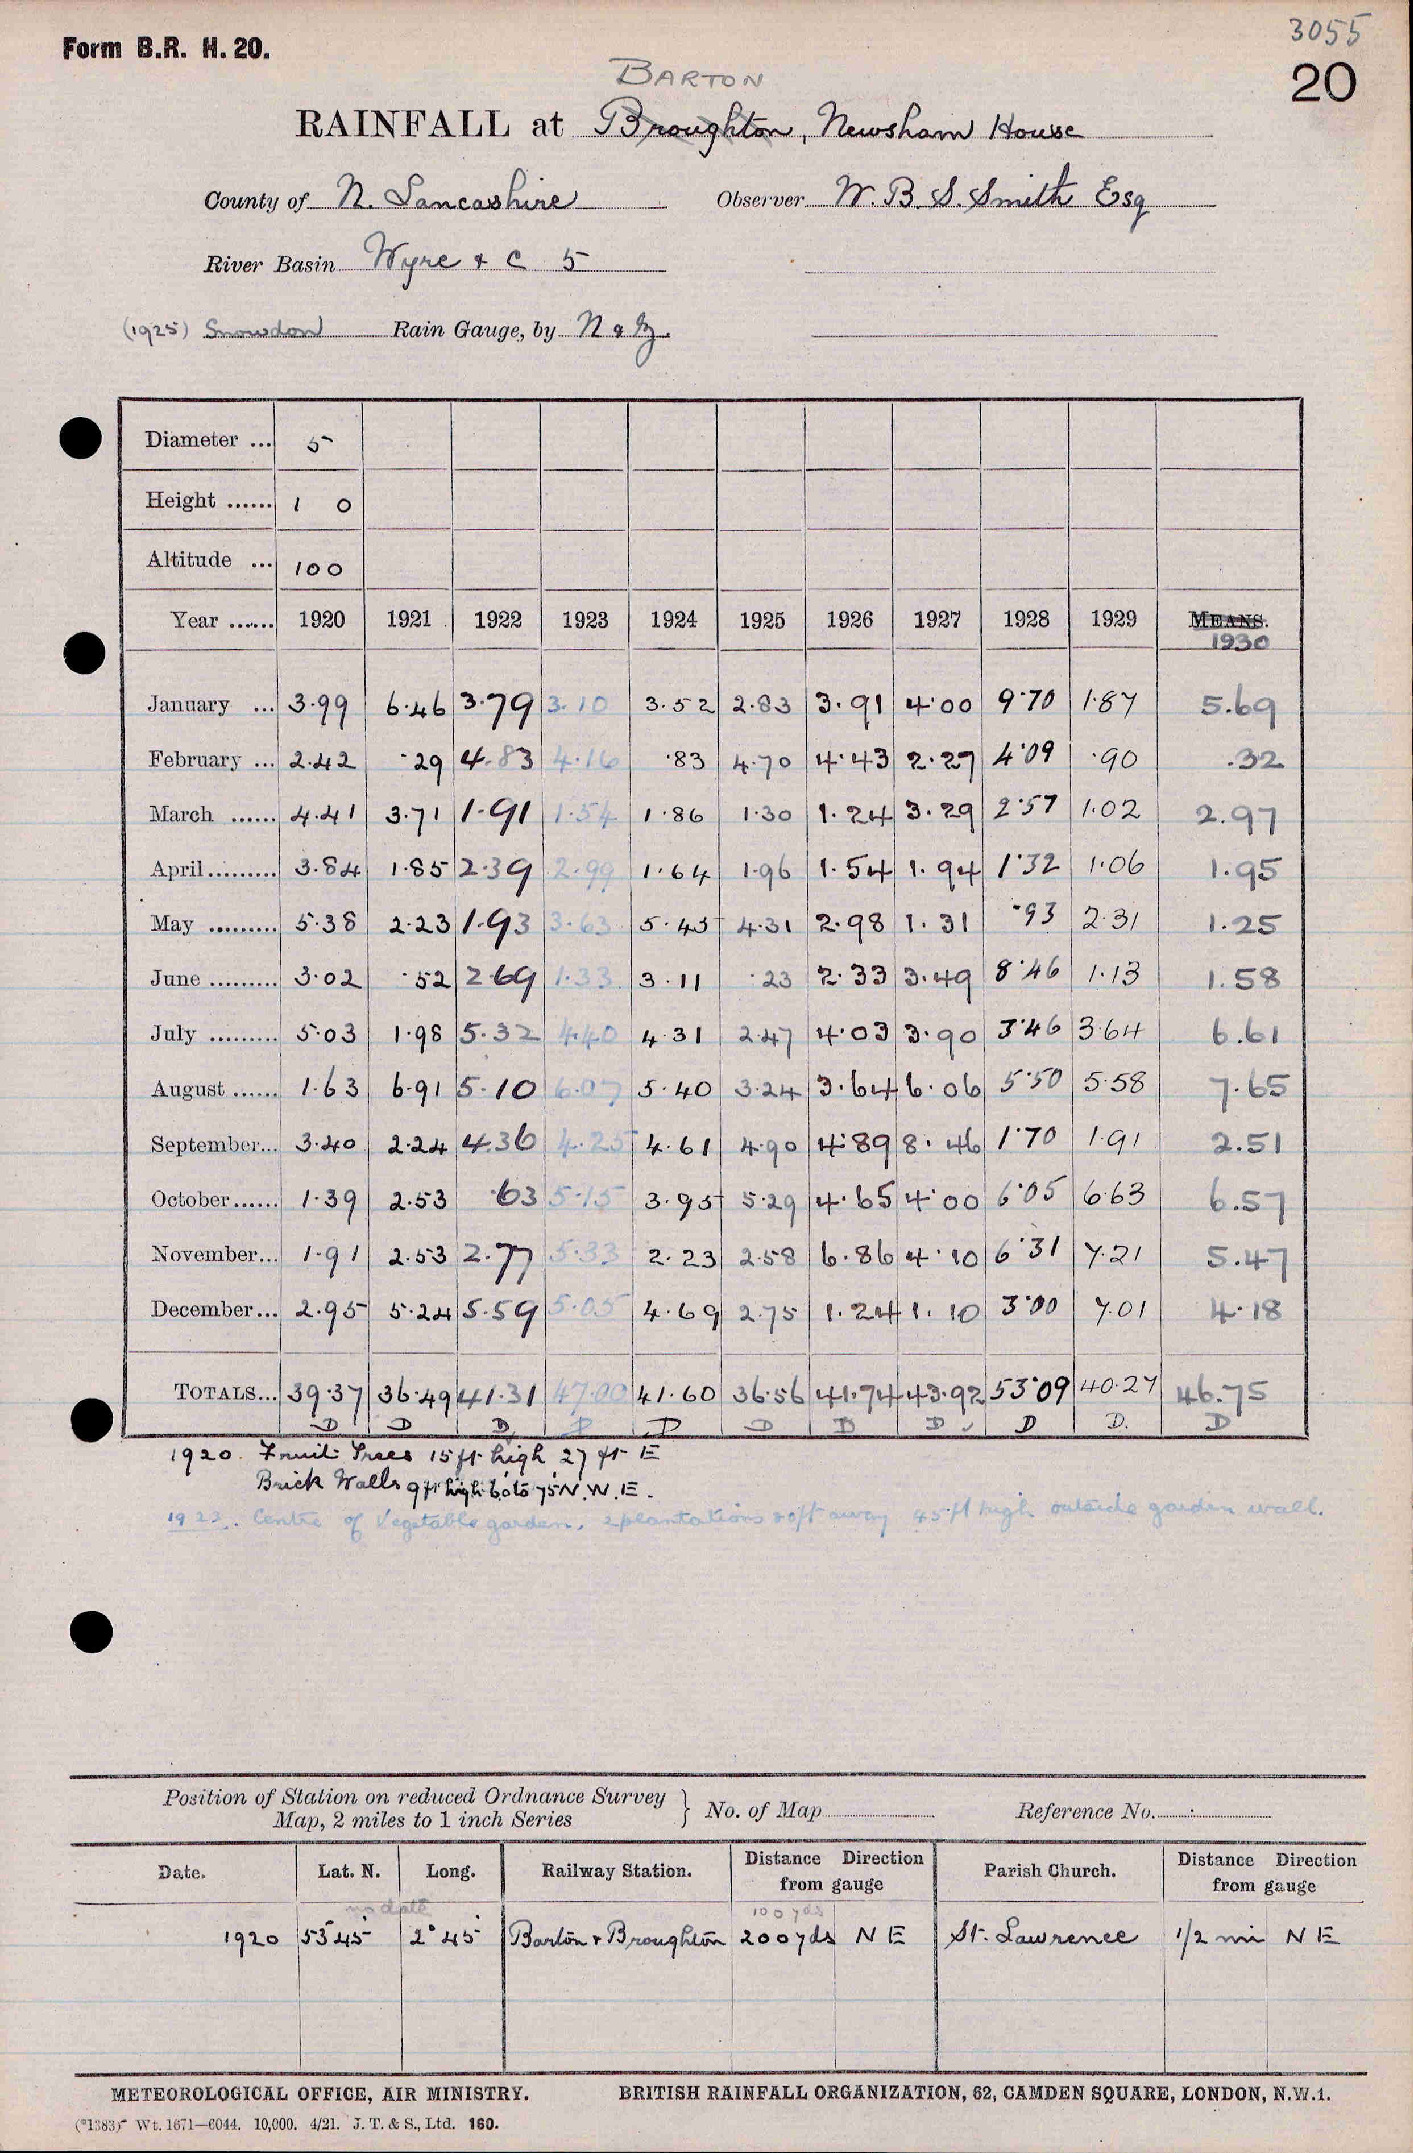 Form B.R. H. 20.
3055
20
BARTON
RAINFALL at Broughton, Newsham House
County of N. Lancashire Observer W. B. S. Smith Esq
River Basin Wyre & C 5
(1925) Snowdon Rain Gauge, by N & Z.
Diameter ... 5
Height ...... 1 0
Altitude ... 100
Year ...... 1920 1921 1922 1923 1924 1925 1926 1927 1928 1929 MEANS.
1930
January ... 3.99 6.46 3.79 3.10 3.52 2.83 3.91 4.00 9.70 1.87 5.69
February ... 2.42 .29 4.83 4.16 .83 4.70 4.43 2.27 4.09 .90 .32
March ...... 4.41 3.71 1.91 1.54 1.86 1.30 1.24 3.29 2.57 1.02 2.97
April......... 3.84 1.85 2.39 2.99 1.64 1.96 1.54 1.94 1.32 1.06 1.95
May ......... 5.38 2.23 1.93 3.63 5.45 4.31 2.98 1.31 .93 2.31 1.25
June ......... 3.02 .52 2.69 1.33 3.11 .23 2.33 3.49 8.46 1.13 1.58
July ......... 5.03 1.98 5.32 4.40 4.31 2.47 4.03 3.90 3.46 3.64 6.61
August ...... 1.63 6.91 5.10 6.07 5.40 3.24 3.64 6.06 5.50 5.58 7.65
September... 3.40 2.24 4.36 4.25 4.61 4.90 4.89 8.46 1.70 1.91 2.51
October...... 1.39 2.53 .63 5.15 3.95 5.29 4.65 4.00 6.05 6.63 6.57
November... 1.91 2.53 2.77 5.33 2.23 2.58 6.86 4.10 6.31 7.21 5.47
December... 2.95 5.24 5.59 5.05 4.69 2.75 1.24 1.10 3.00 7.01 4.18
TOTALS... 39.37 36.49 41.31 47.00 41.60 36.56 41.74 43.92 53.09 40.27 46.75
D D D D D D D D D D. D
1920. Fruit Trees 15 ft high 27 ft E
Brick Walls 9 ft high 60 to 75 N. W. E.
1923. Centre of Vegetable garden. 2 plantations 20ft away 45 ft high outside garden wall.
Position of Station on reduced Ordnance Survey
Map, 2 miles to 1 inch Series } No. of Map Reference No.
Date. Lat. N. Long. Railway Station. Distance Direction from gauge Parish Church. Distance Direction from gauge
no date 100 yds
1920 53°45' 2°45' Barton & Broughton 200 yds N E St. Lawrence 1/2 mi N E
METEOROLOGICAL OFFICE, AIR MINISTRY. BRITISH RAINFALL ORGANIZATION, 62, CAMDEN SQUARE, LONDON, N.W.1.
(*1383)* Wt. 1671—6044. 10,000. 4/21. J. T. & S., Ltd. 160.